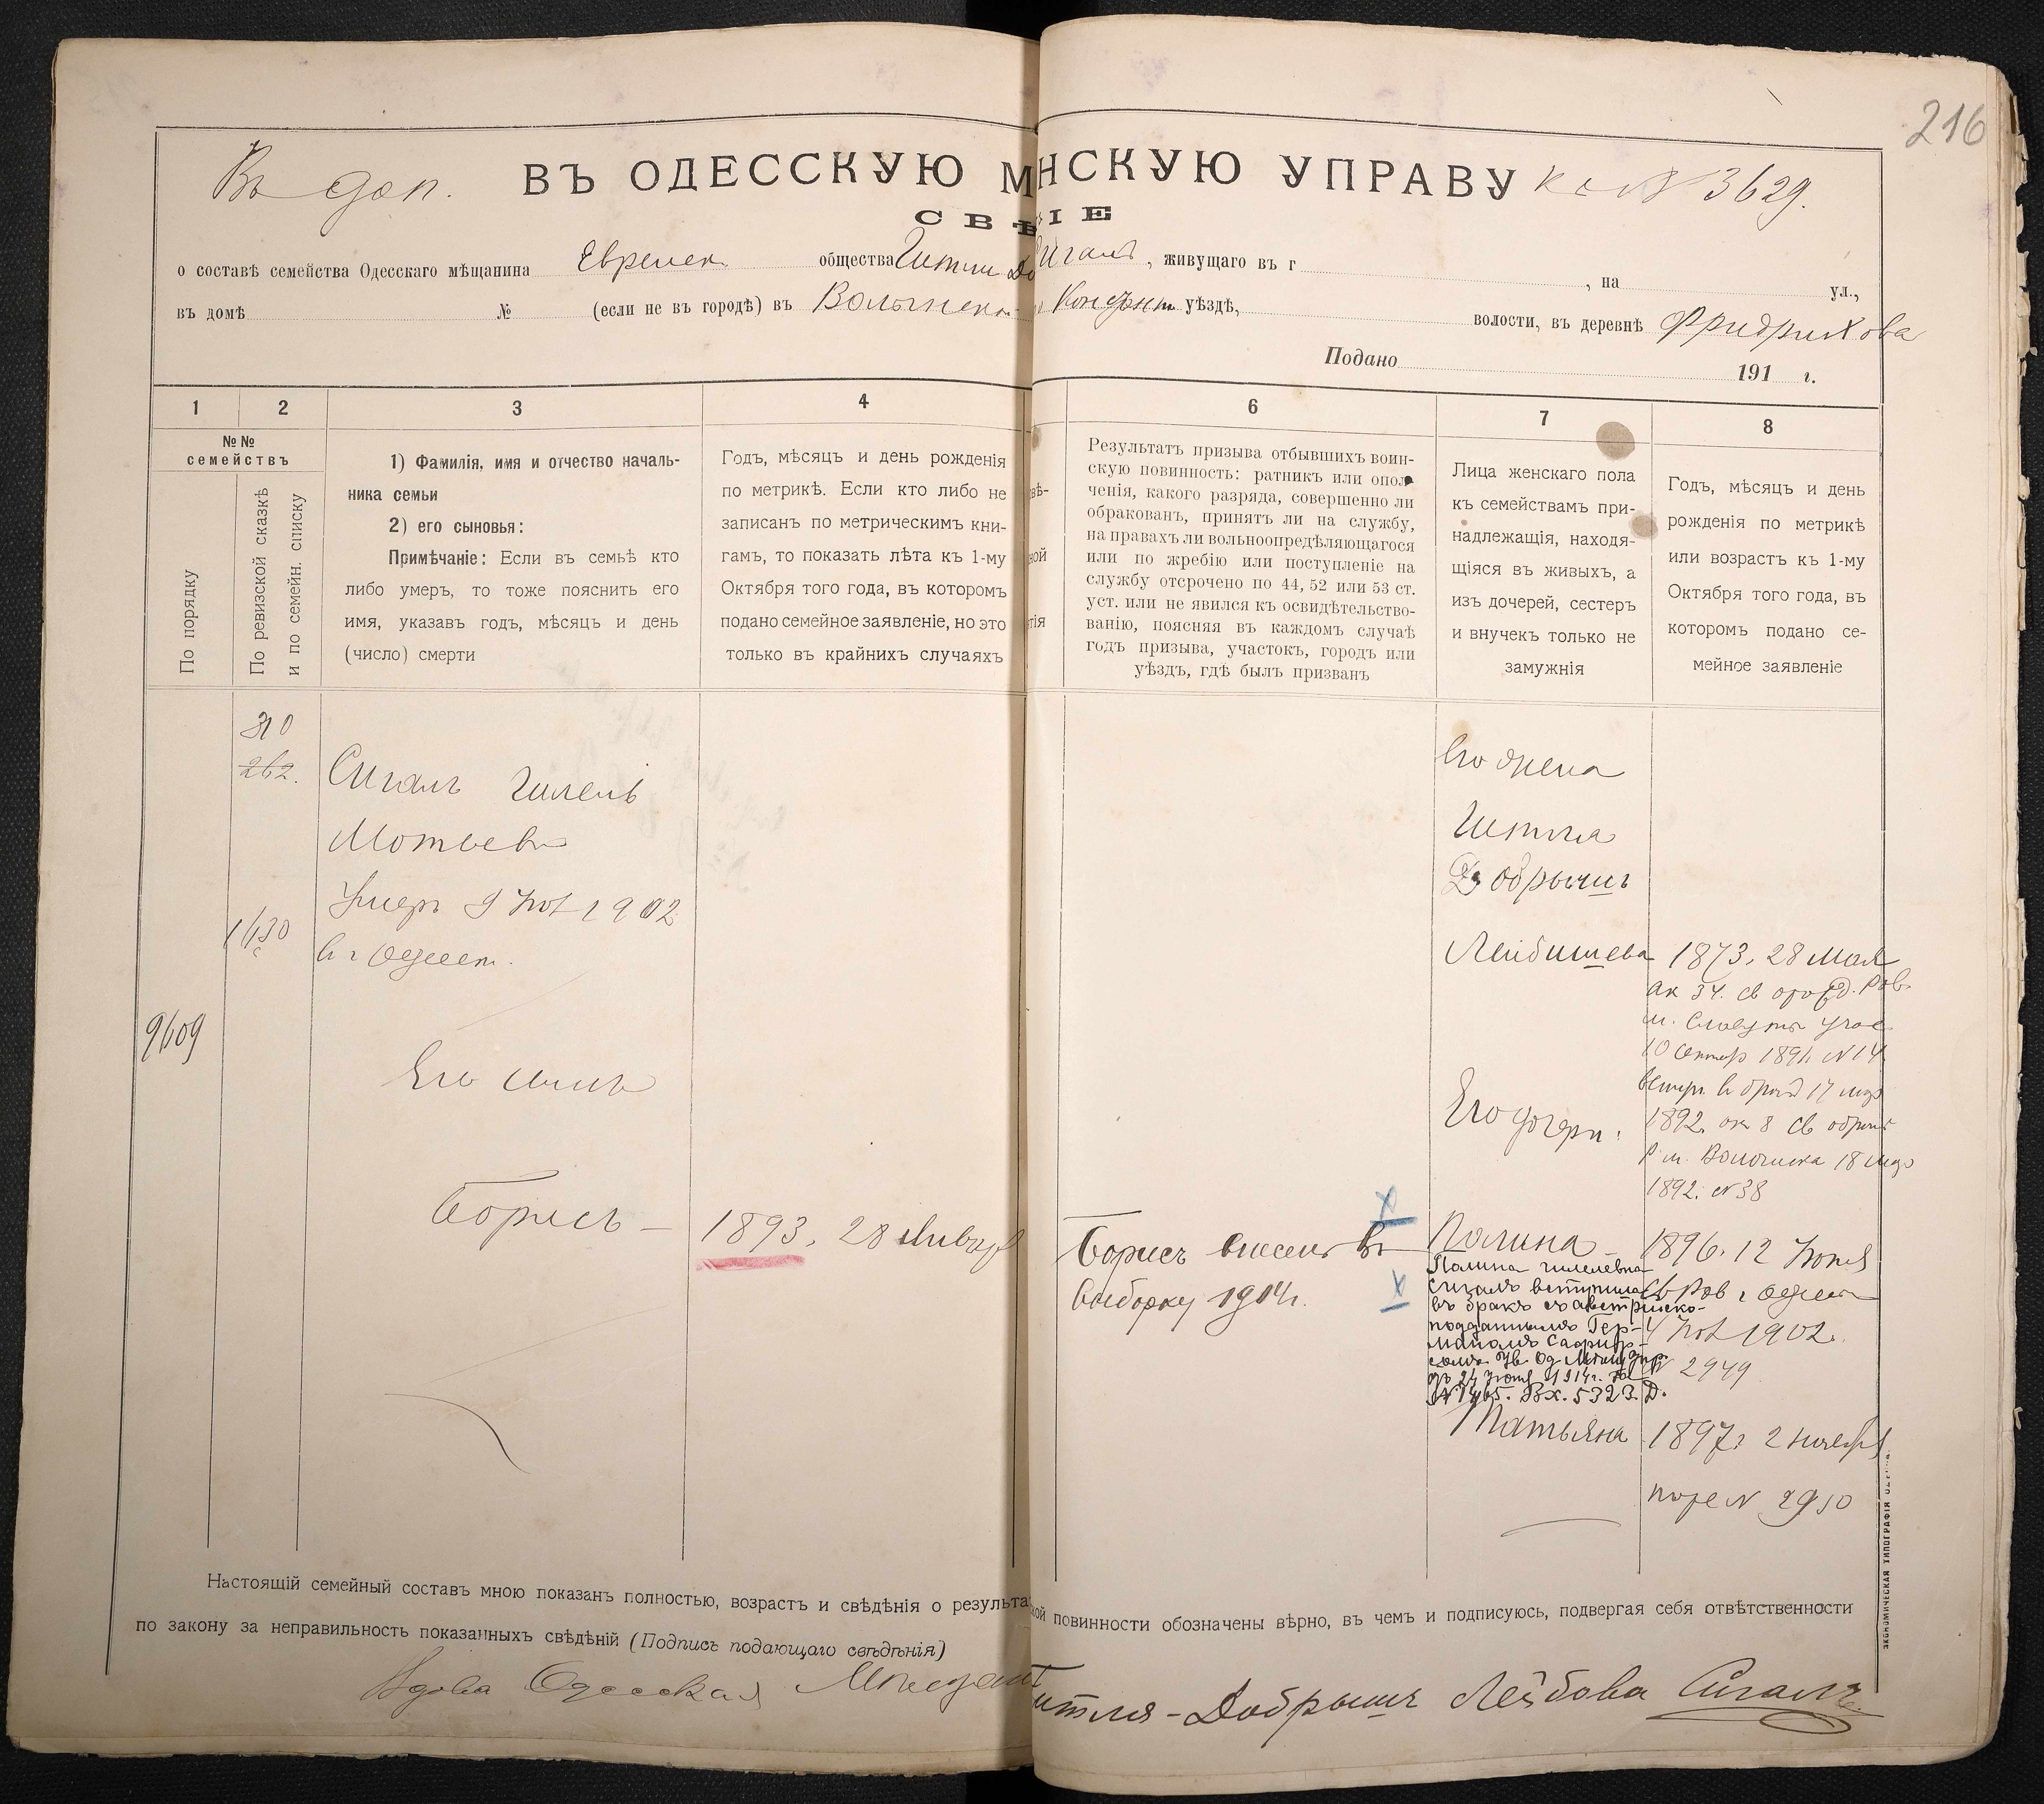 216
Въ доп. ВЪ ОДЕССКУЮ М НСКУЮ УПРАВУ к с № 3629.
СВѢ ІЕ
о составѣ семейства Одесскаго мѣщанина Еврейск общества Гитли До игалъ, живущаго въ г , на ул.,
въ домѣ № (если не въ городѣ) въ Волынской уѣздѣ, волости, въ деревнѣ Фридрихова
Подано 191 г.
1 2 3 4 6 7 8
№№
семействъ
По порядку
По ревизской сказкѣ
и по семейн. списку
1) Фамилія, имя и отчество началь-
ника семьи
2) его сыновья:
Примѣчаніе: Если въ семьѣ кто
либо умеръ, то тоже пояснить его
имя, указавъ годъ, мѣсяцъ и день
(число) смерти
Годъ, мѣсяцъ и день рожденія
по метрикѣ. Если кто либо не
записанъ по метрическимъ кни-
гамъ, то показать лѣта къ 1-му
Октября того года, въ которомъ
подано семейное заявленіе, но это
только въ крайнихъ случаяхъ
вѣ-
ной
тія
Результатъ призыва отбывшихъ воин-
скую повинность: ратникъ или опол
ченія, какого разряда, совершенно ли
обракованъ, принятъ ли на службу,
на правахъ ли вольноопредѣляющагося
или по жребію или поступленіе на
службу отсрочено по 44, 52 или 53 ст.
уст. или не явился къ освидѣтельство-
ванію, поясняя въ каждомъ случаѣ
годъ призыва, участокъ, городъ или
уѣздъ, гдѣ былъ призванъ
Лица женскаго пола
къ семействамъ при-
надлежащія, находя-
щіяся въ живыхъ, а
изъ дочерей, сестеръ
и внучекъ только не
замужнія
Годъ, мѣсяцъ и день
рожденія по метрикѣ
или возрастъ къ 1-му
Октября того года, въ
которомъ подано се-
мейное заявленіе
262.
9609
Сигалъ Гилель
Мотьевъ
Умеръ 9 1902
в г Одессѣ.
Его сынъ
Борисъ – 1893, 28 Января
Борисъ внесенъ въ
выборку 1914г.
Его жена
Гитля
Добрышъ
Лейбишева 1873, 28 Мая
ак 34. св Рав.
м. Славута
10 1891 №14
вступ. в брак 17 мар
1892. ак 8 св
Р м. Волочиска 18 мар
1892. №38
Его дочери:
Полина – 1896. 12 Іюня
св Рав г Одессы
1902.
№ 2949
Полина Гилелевна
Сигалъ вступила
въ бракъ съ австрійско-
подданнымъ Гер-
маномъ
24 Іюня 1914г.
№1465. Вх. 5323. Д.
Татьяна 1897г 2 ноября
№ 2950
Настоящій семейный составъ мною показанъ полностью, возрастъ и свѣдѣнія о результа кой повинности обозначены вѣрно, въ чемъ и подписуюсь, подвергая себя отвѣтственности
по закону за неправильность показанныхъ свѣдѣній (Подпись подающаго свѣдѣнія)
Вдова Одесская Мѣщан итля-Добрышъ Лейбова Сигалъ
ЭКОНОМИЧЕСКАЯ ТИПОГРАФІЯ